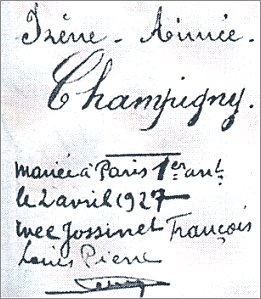 Irène - Aimée -
Champigny.
mariée à Paris 1er arrt.
le 2 avril 1927
avec Jossinet François
Louis Pierre